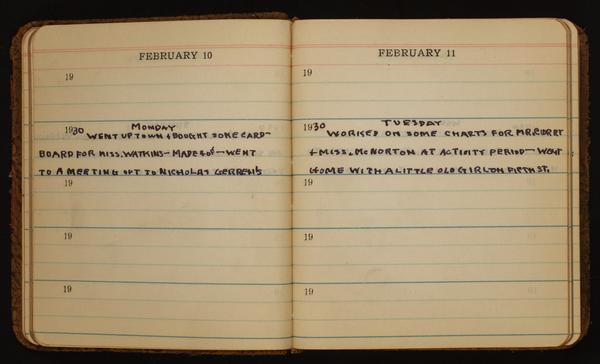 FEBRUARY 10
19
1930 MONDAY
WENT UP TOWN & BOUGHT SOME CARD-
BOARD FOR MISS. WATKINS - MADE 50¢ - WENT
TO A MEETING OUT TO NICHOLAS GERREN'S
19
19
19
FEBRUARY 11
19
1930 TUESDAY
WORKED ON SOME CHARTS FOR MR.
& MISS. McNORTON AT ACTIVITY PERIOD - WENT
HOME WITH A LITTLE OLD GIRL ON FIFTH ST.
19
19
19